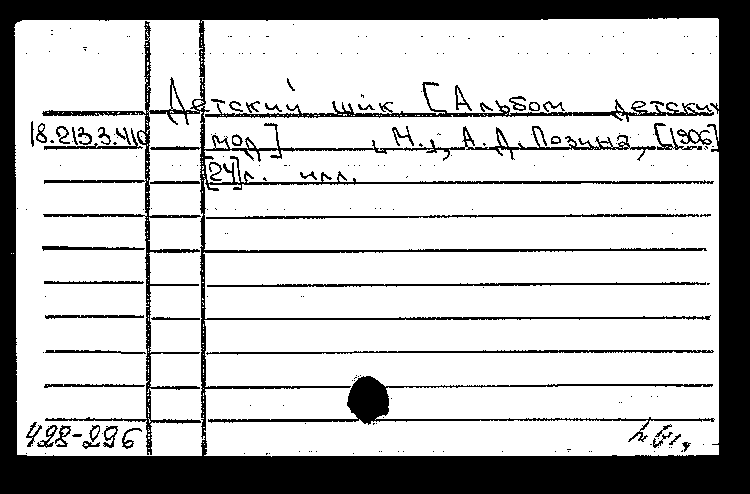 Детский шик. [Альбом детских
18.213.3.410 мод] „М.", А.Д. Позина, [1906]
[24]л. илл.
428-296